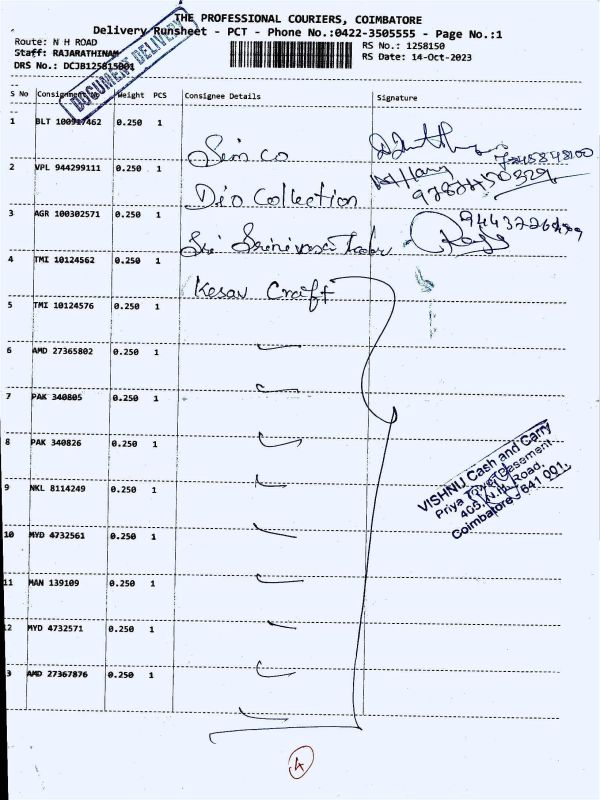 THE PROFESSIONAL COURIERS, COIMBATORE
Delivery Runsheet - PCT - Phone No.:0422-3505555 - Page No.:1
Route: N H ROAD
RS No.: 1258150
Staff: RAJARATHINAM
RS Date: 14-Oct-2023
DRS No.: DCJB125815001
DOCUMENT DELIVERY
S No Consignment No Weight PCS Consignee Details Signature
1 BLT 100917462 0.250 1 Sim co
2 VPL 944299111 0.250 1 Dio Collection
3 AGR 100302571 0.250 1 Sri Srinivasa
4 TMI 10124562 0.250 1 Kesav Craft
5 TMI 10124576 0.250 1
6 AMD 27365802 0.250 1
7 PAK 340805 0.250 1
8 PAK 340826 0.250 1
9 NKL 8114249 0.250 1
10 MYD 4732561 0.250 1
11 MAN 139109 0.250 1
2 MYD 4732571 0.250 1
3 AMD 27367876 0.250 1
VISHNU Cash and Carry
Priya Tower Basement
405, N.H. Road,
Coimbatore - 641 001.
4